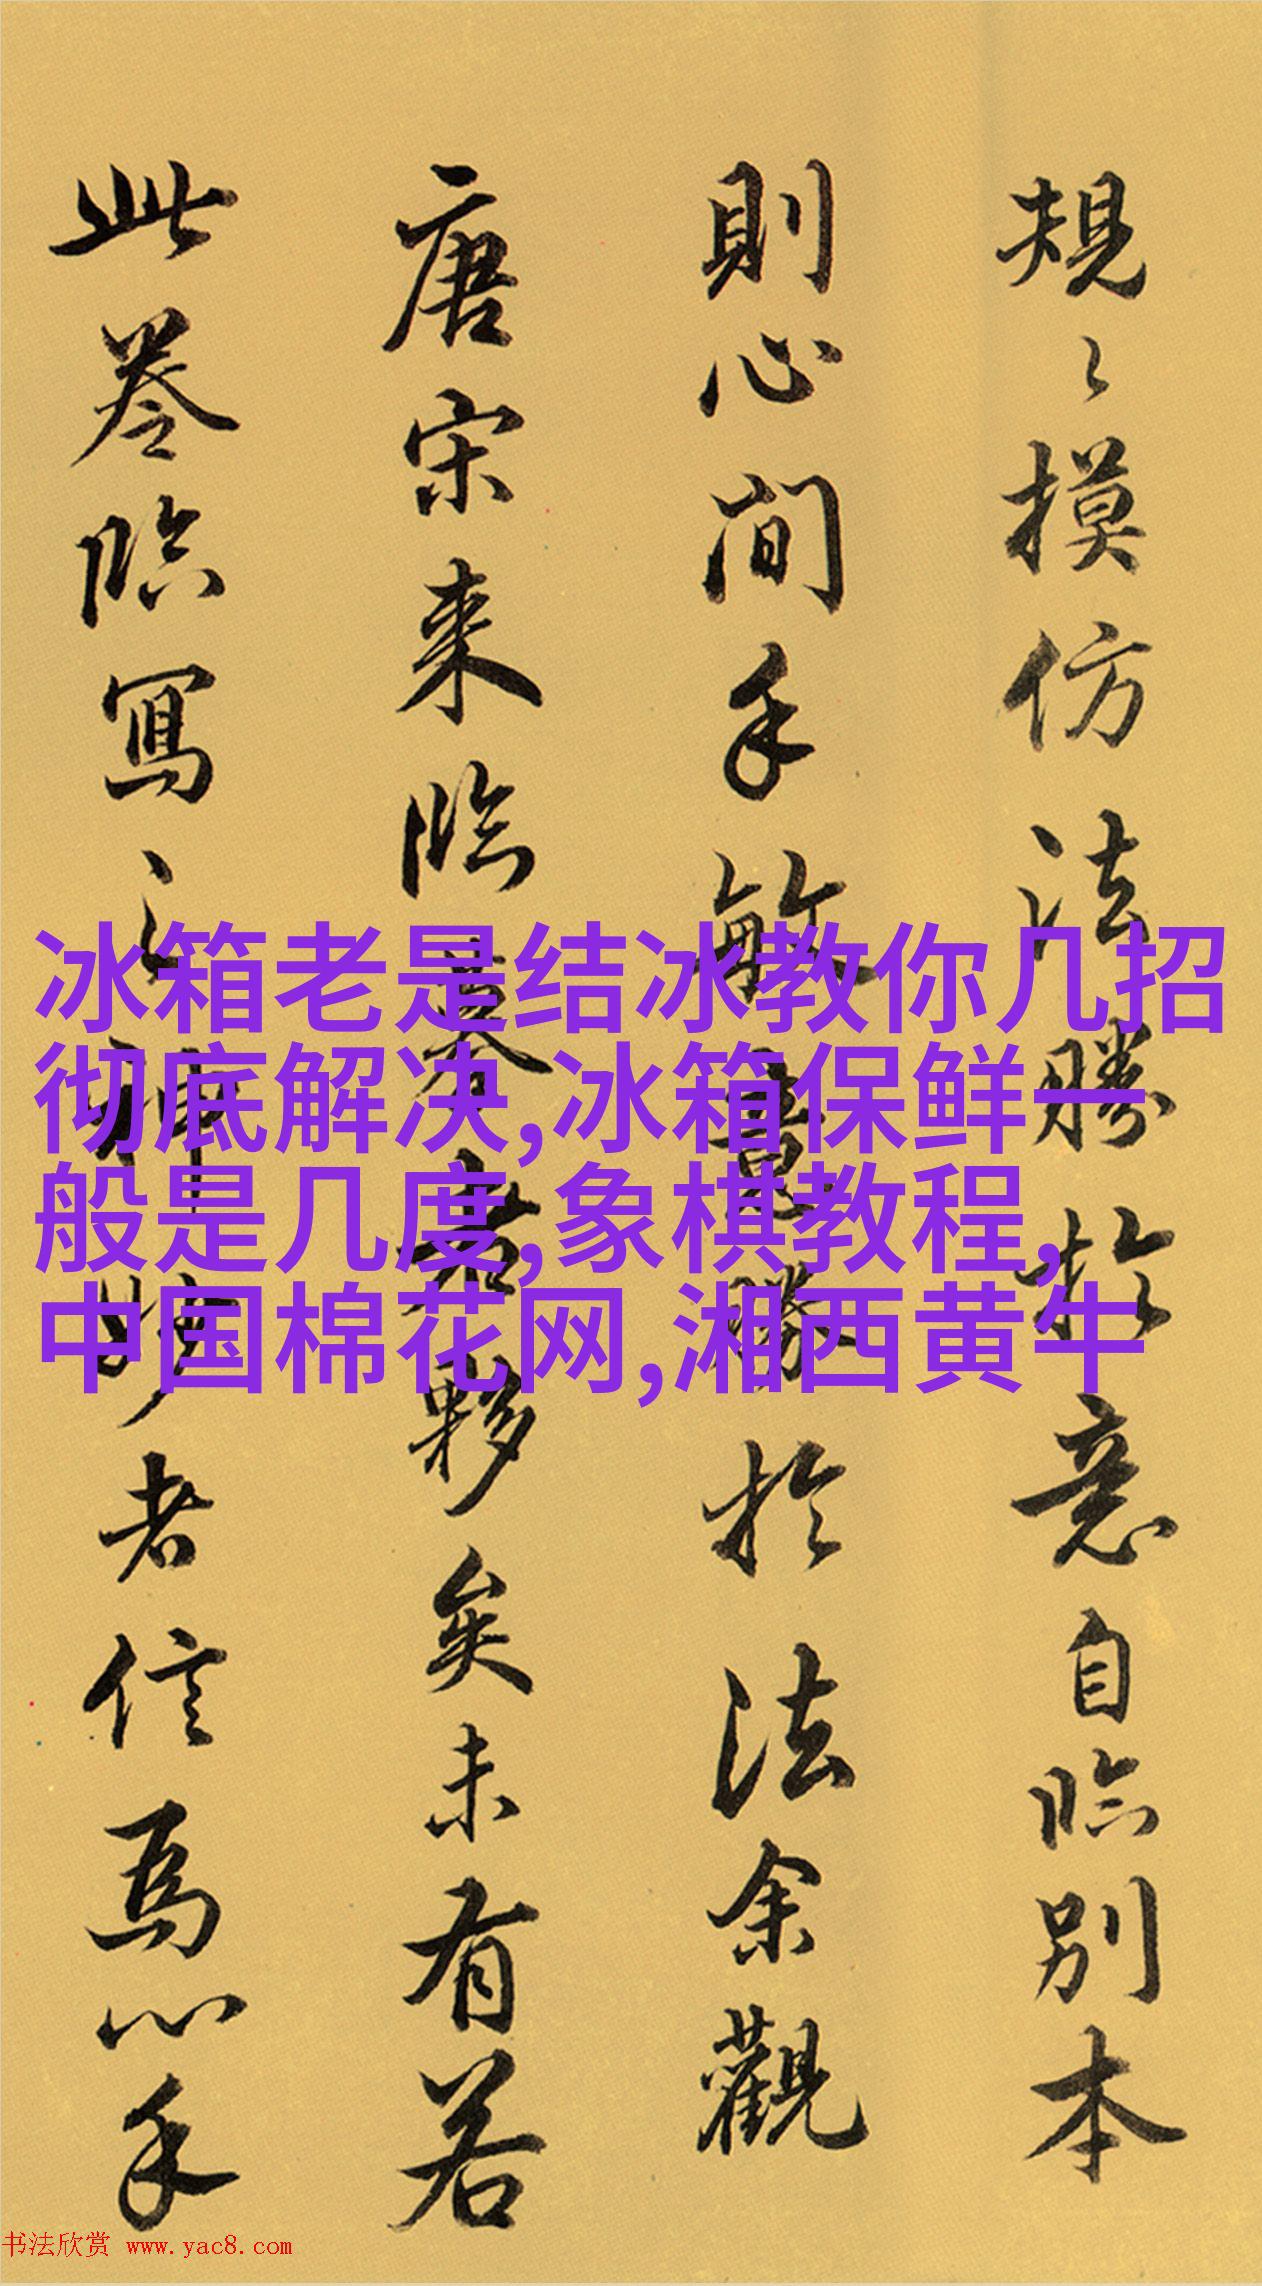 規〻摸仿法勝於意自臨别本
則心閒手敏意勝於法余觀
唐宋来臨摹者夥矣未有若
此卷臨寫之神妙者信爲心手
冰箱老是结冰教你几招
彻底解决,冰箱保鲜一
般是几度,象棋教程,
中国棉花网,湘西黄牛
书法欣赏 www.yac8.com